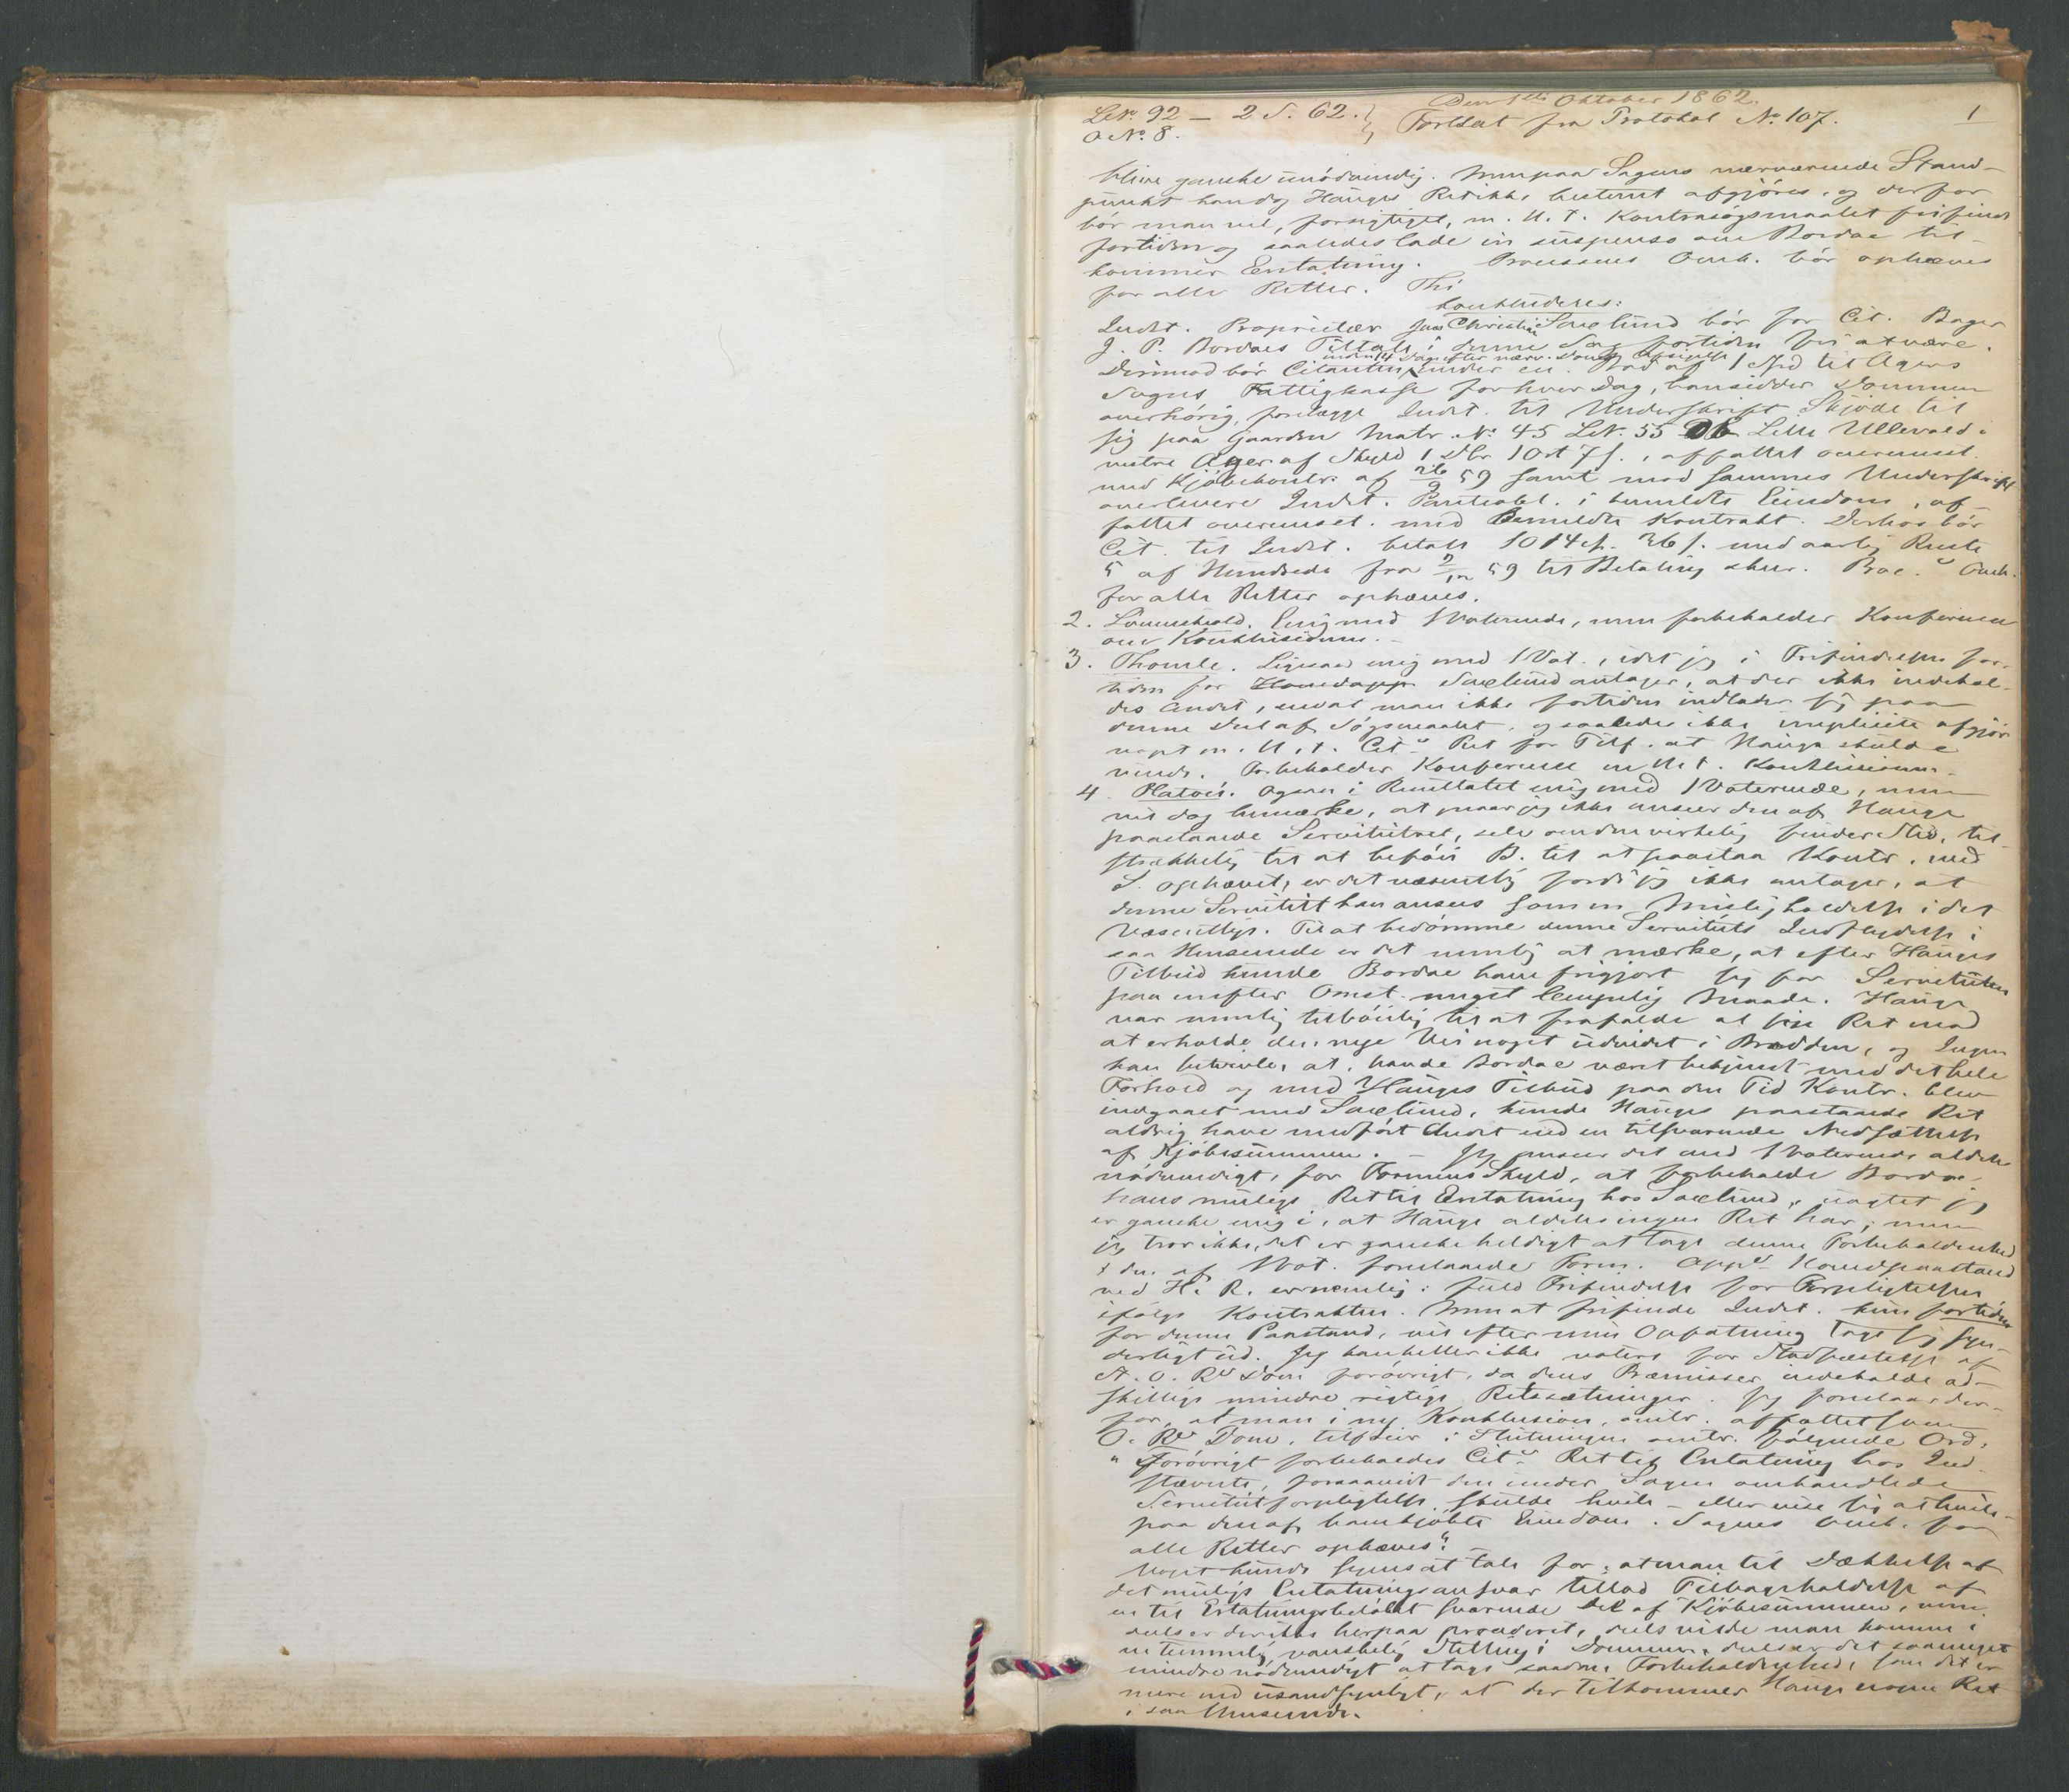 Den 1ste Oktober 1862.
LN. 92 — 2 S. 62. } Fortsat fra Protokol No. 107. 1
a No. 8.
blive ganske unödvendig. Men paa Sagens nærværende Stand-
punkt kan dog Hauges Ret ikke bestemt afgjöres, og derfor
bör man vel, forsigtigst, m. H. t. Kontrasögsmaalet frifinde
fortiden og saaledes lade in suspenso om Bordoe til-
kommer Erstatning. Processens Omk. bör ophæves
for alle Retter. Thi
konkluderes:
Indst. Proprietær Jens Christian Saxlund bör for Cit. Bager
J. P. Bordoes Tiltale i denne Sag fortiden fri at være.
inden 14 Dage efter nærv. Doms Afsigelse
Derimod bör Citanten under en Mod af 1 Spd til Agers
Sogns Fattigkasse for hver Dag, han sidder Dommen
overhörig, forelægge Indst. til Underskrift Skjöde til
sig paa Gaarden Matr. No. 45 LN. 55 Lille Ullevold i
vestre Aker af Skyld 1 Dlr 1 Ort 7 s., affattet overensst.
med Kjöbekontr. af 26/9 59 samt mod sammes Underskrift
overlevere Indst. Panteobl. i bemeldte Eiendom, af-
fattet overensst. med bemeldte Kontrakt. Derhos bör
Cit. til Indst. betale 1014 sp. 36 s. med aarlig Rente
5 af Hundrede fra 59 til Betaling sker. Proc. Omk.
for alle Retter ophæves.
2. Lövenskiold. Enig med 1 Voterende, men forbeholder Konference
om Konklusionen. —
3. Thomle. Ligesaa enig med 1 Vot., idet jeg i Frifindelsen for-
tiden for Hovedapp. Saxlund antager, at der ikke indehol-
des Andet, end at man ikke fortiden indlader sig paa
denne Del af Sögsmaalet, og saaledes ikke implicite afgjör
noget m. H. t. Cits Ret for Tilf. at Hauge skulde
vinde. Forbeholder Konference m. H. t. Konklusionen.
4. Platou. Ogsaa i Resultatet enig med 1 Voterende, men
vil dog bemærke, at naar jeg ikke anseer den af Hauge
paastaaede Servitutret, selv om den virkelig finder Sted, til-
strækkelig til at beföie B. til at paastaa Kontr. med
S. ophævet, er det væsentlig fordi jeg ikke antager, at
denne Servitut kan ansees som en Misligholdelse i det
Væsentlige. Til at bedömme denne Servituts Indflydelse i
saa Henseende er det nemlig at mærke, at efter Hauges
Tilbud kunde Bordoe have frigjort sig for Servituten
paa en efter Omst. meget lempelig Maade. Hauge
var nemlig tilböielig til at frafalde al sin Ret mod
at erholde den nye Vei noget udvidet i Bredden, og Ingen
kan betvivle, at, havde Bordoe været bekjendt med det hele
Forhold og med Hauges Tilbud paa den Tid Kontr. blev
indgaaet med Saxlund, kunde Hauges paastaaede Ret
aldrig have medfört Andet end en tilsvarende Nedsættelse
af Kjöbesummen. — Jeg anseer det med 1 Voterende aldeles
nödvendigt, for Formens Skyld, at forbeholde Bordoe
hans mulige Ret til Erstatning hos Saxlund, uagtet jeg
er ganske enig i, at Hauge aldeles ingen Ret har; men
jeg tror ikke, det er ganske heldigt at tage denne Forbeholdenhed
i den af 1 Vot. foreslaaede Form. Apps Hovedpaastand
ved H. R. er nemlig: fuld Frifindelse for Forpligtelsen
ifölge Kontrakten. Men at frifinde Indst. kun fortiden
for denne Paastand, vil efter min Opfatning tage sig syn-
derligt ud. Jeg kan heller ikke votere for Stadfæstelse af
St. O. Rs Dom forövrigt, da dens Præmisser indeholde ad-
skillige mindre rigtige Retssætninger. Jeg foreslaar der-
for, at man i ny Konklusion, omtr. affattet som
O. Rs Dom, tilföier i Slutningen omtr. fölgende Ord:
"Forövrigt forbeholdes Cits Ret til Erstatning hos Ind-
stævnte, forsaavidt den under Sagen omhandlede
Servitutforpligtelse skulde hvile – eller vise sig at hvile –
paa den af ham kjöbte Eiendom. Sagens Omk. for
alle Retter ophæves." —
Noget kunde synes at tale for, at man til Dækkelse af
det mulige Erstatningsansvar tillod Tilbageholdelse af
en til Erstatningsbelöbet svarende Del af Kjöbesummen, men
dels er der ikke herpaa procederet, dels vilde man komme i
en temmelig vanskelig Stilling i Dommen, dels er det saameget
mindre nödvendigt at tage saadan Forbeholdenhed, som det er
mere end usandsynligt, at der tilkommer Hauge nogen Ret
i saa Henseende.